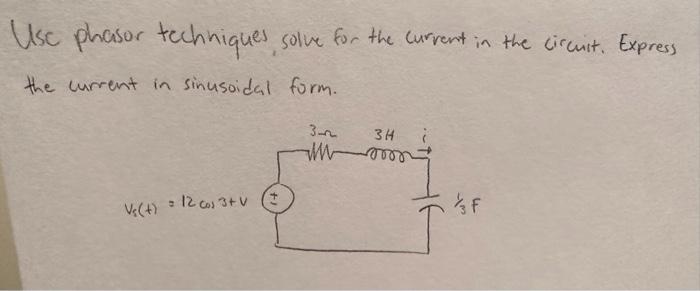 Use phasor techniques, solve for the current in the circuit. Express
the current in sinusoidal form.
3Ω 3H i
Vs(t) = 12 cos 3t V + - 1/3 F